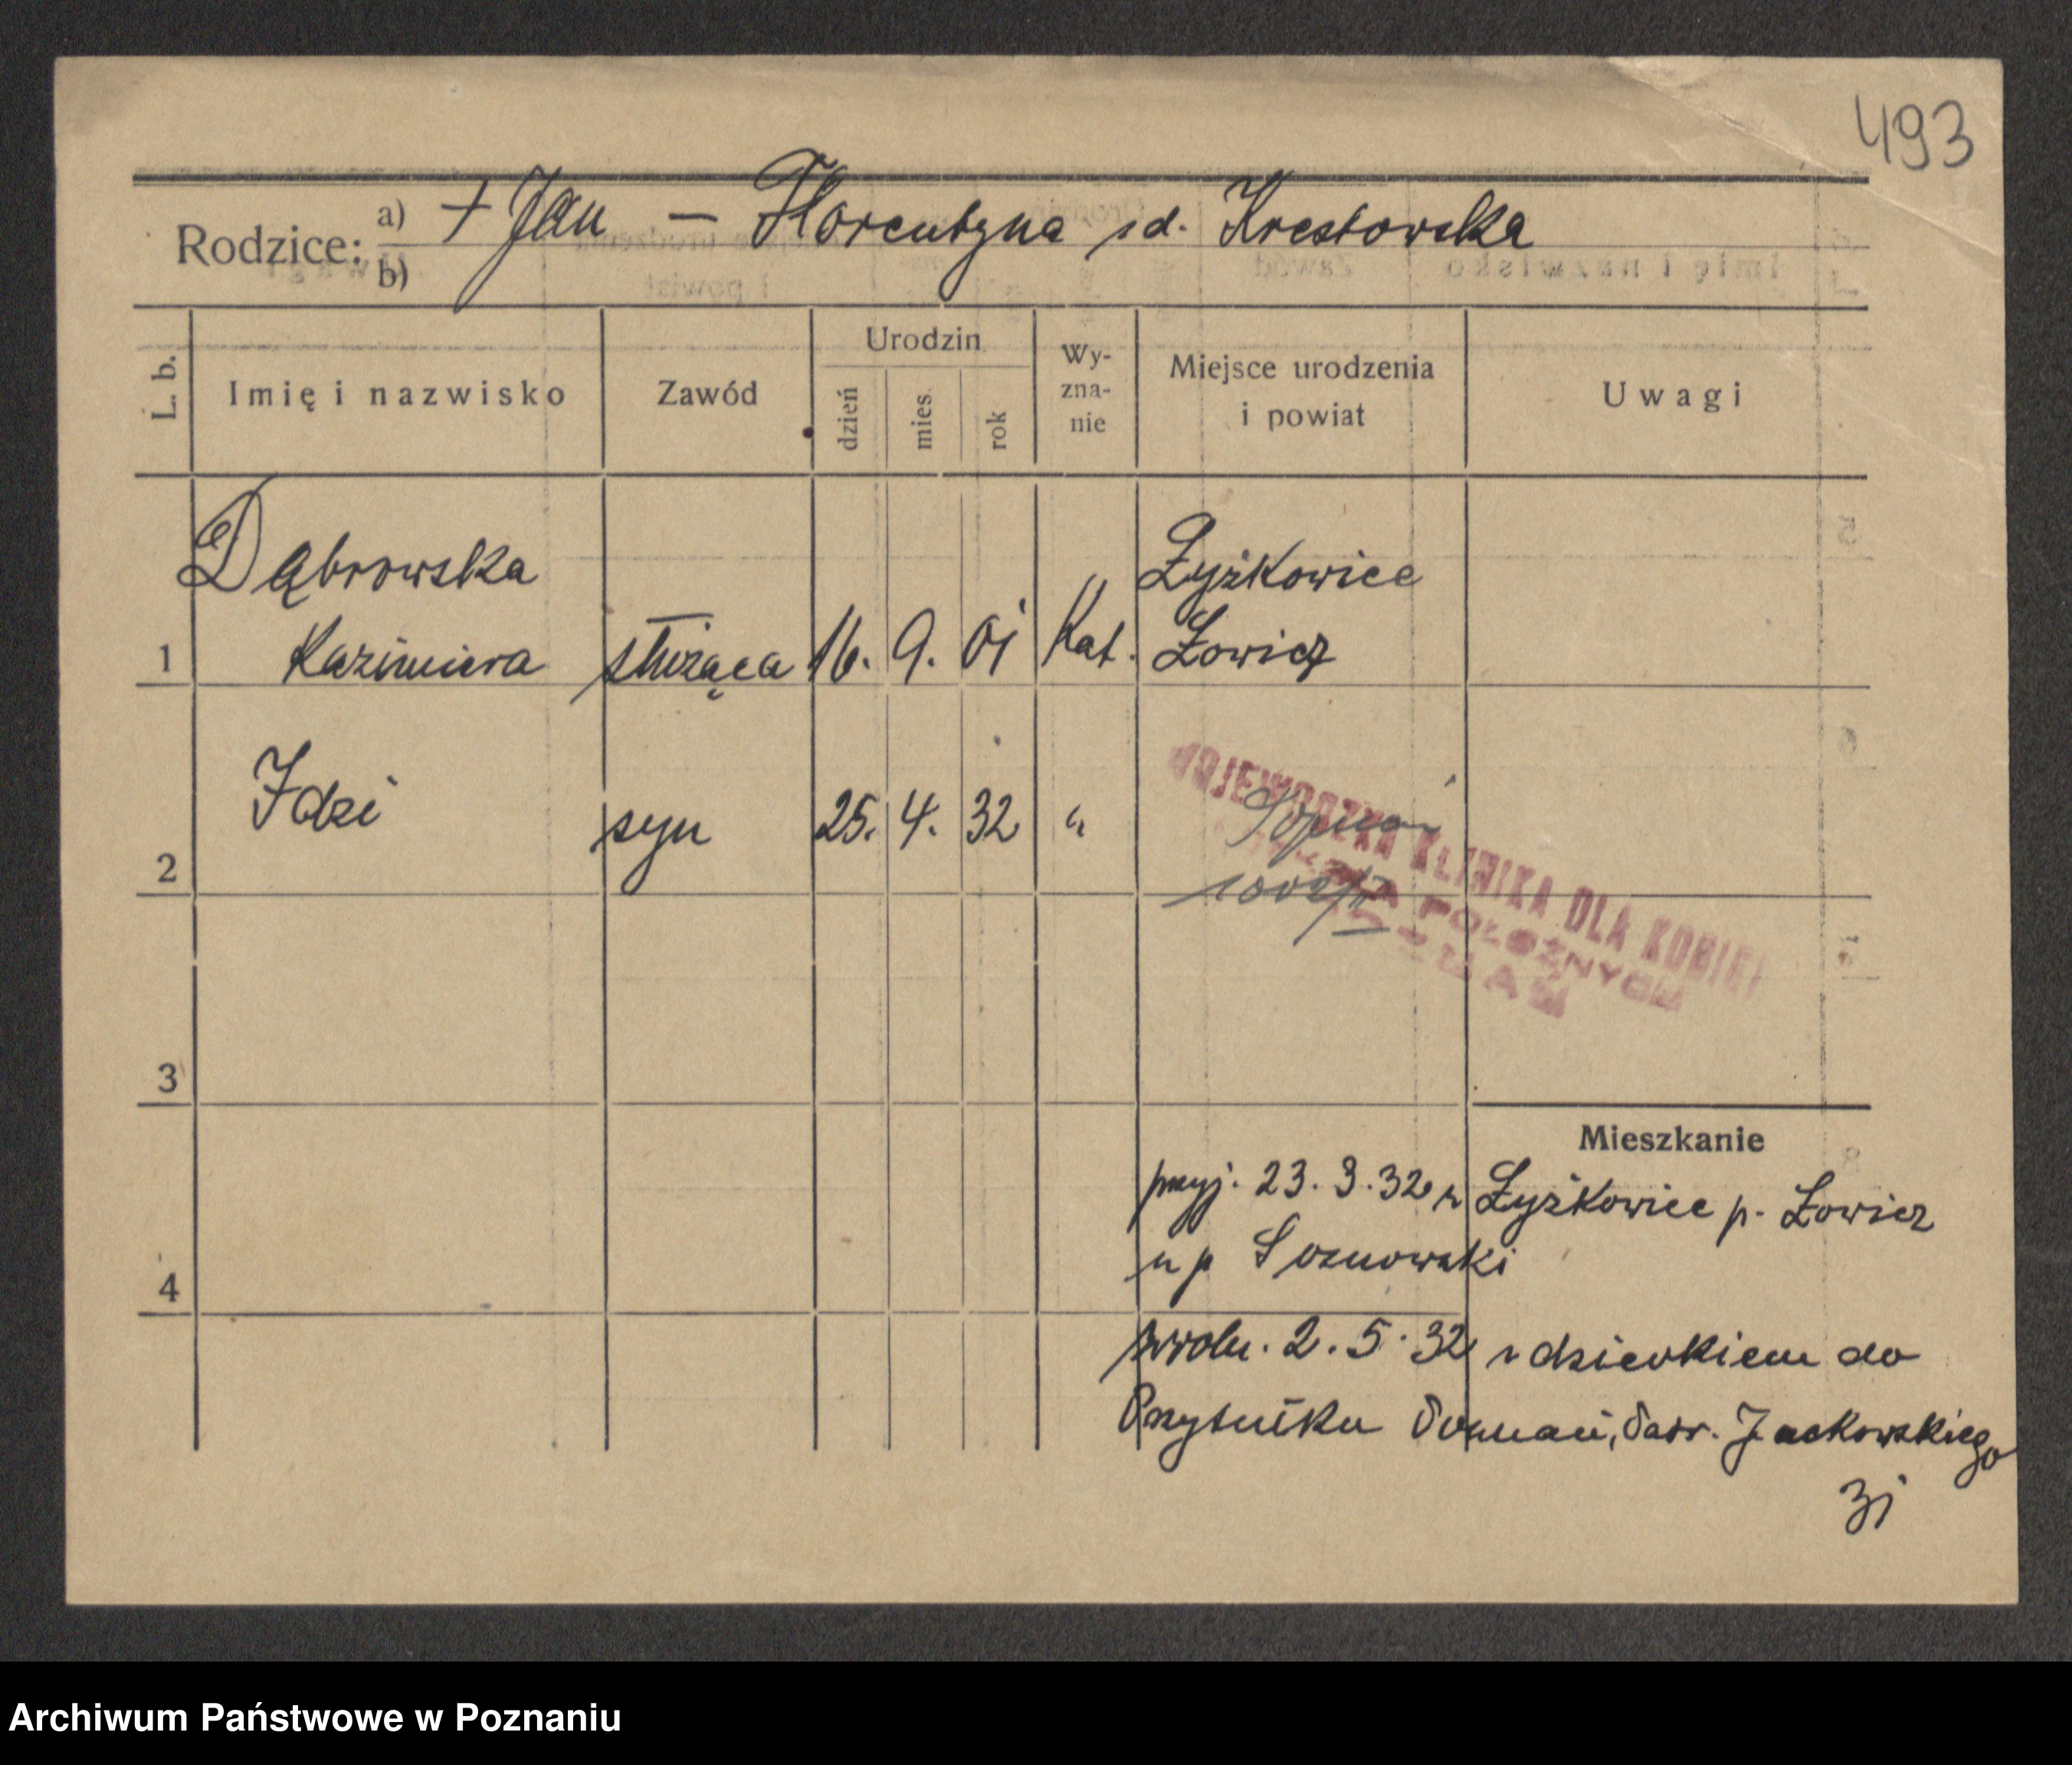 493
Rodzice: a) + Jan — Florentyna sd. Krestowska
b)
L. b.
Imię i nazwisko
Zawód
Urodzin
dzień
mies.
rok
Wy-
zna-
nie
Miejsce urodzenia
i powiat
Uwagi
Dąbrowska
Łyżkowice
1 Kazimiera służąca 16. 9. 01 Kat. Łowicz
2 Idzi syn 25. 4. 32 "
WOJEWÓDZKA KLINIKA DLA KOBIET
POŁOŻNYCH
3
Mieszkanie
przyj. 23. 3. 32 z Łyżkowice p. Łowicz
u p Sosnowski
4
zwoln. 2. 5. 32 z dzieckiem do
Przytułku Poznań, Jackowskiego
31
Archiwum Państwowe w Poznaniu